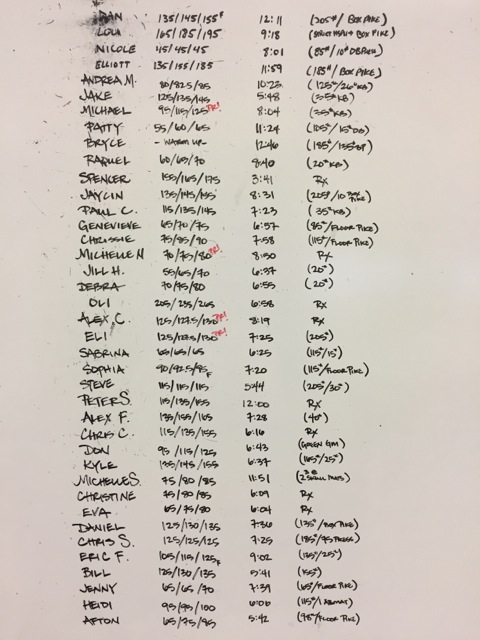 DAN 135/145/155F 12:11 (205#/ BOX PIKE)
LOLA 165/185/195 9:18 BOX PIKE)
NICOLE 45/45/45 8:01 (85#/10# DBPress)
ELLIOTT 135/155/185 11:59 (185#/ BOX PIKE)
ANDREA M. 80/82.5/85 10:23 (125#/26#KB)
JAKE 125/135/145 5:48 (35#KB)
MICHAEL 95/115/125 PR! 8:04 (35#KB)
PATTY 55/60/65 11:24 (105#/15#DB)
BRYCE - WARM UP - 12:46
RAQUEL 60/65/70 8:40 (20#KB)
SPENCER 155/165/175 3:41 RX
JAYCIN 135/145/155 8:31
PAUL C. 115/135/145 7:23 (35#KB)
GENEVIEVE 65/70/75 6:57 (85#/FLOOR PIKE)
CHRISSIE 75/85/90 7:58 (115#/FLOOR PIKE)
MICHELLE M 70/75/80 PR! 8:50 RX
JILL H. 55/65/70 6:37 (20#)
DEBRA 70/75/80 6:55 (20#)
OLI 205/235/265 6:58 RX
ALEX C. 125/127.5/130 PR! 8:19 RX
ELI 125/127.5/130 PR! 7:25 (205#)
SABRINA 65/65/65 6:25 (115#/15#)
SOPHIA 90/92.5/95F 7:20 (115#/FLOOR PIKE)
STEVE 115/115/115 5:44 (205#/30#)
PETER S. 115/135/155 12:00 RX
ALEX F. 135/155/165 7:28 (40#)
CHRIS C. 115/135/155 6:16 RX
DON 95/115/125 6:43 (GREEN GM)
KYLE 135/145/155 6:37 (165#/25#)
MICHELLE S. 75/80/85 11:51 SMALL MATS)
CHRISTINE 75/80/85 6:09 RX
EVA 65/75/80 6:04 RX
DANIEL 125/130/135 7:36 (135#/BOX PIKE)
CHRIS S. 125/125/125 7:25 (185#/45 PRESS)
ERIC F. 105/115/125F 9:02 (135#/25#)
BILL 125/130/135 5:41 (155#)
JENNY 65/65/70 7:39 (65#/FLOOR PIKE)
HEIDI 95/95/100 6:00 (115#/1 ABMAT)
AFTON 65/75/85 5:42 (95#/FLOOR PIKE)